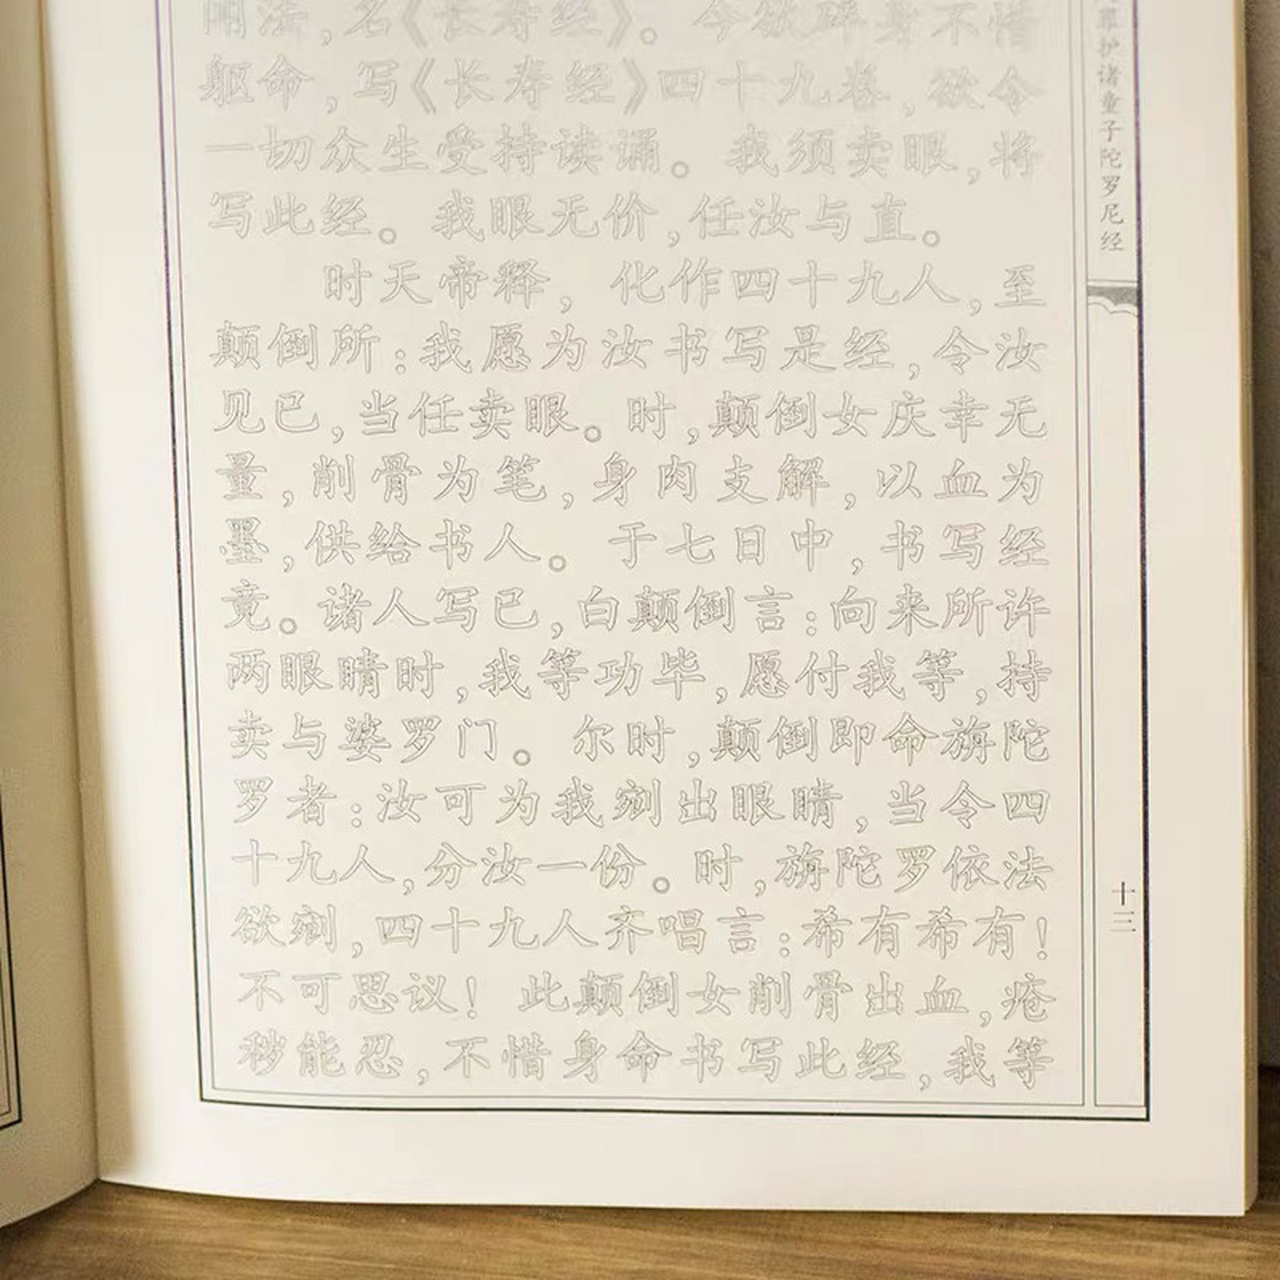 法,名《长寿经》。今欲碎身不惜
躯命,写《长寿经》四十九卷,欲令
一切众生受持读诵。我须卖眼,将
写此经。我眼无价,任汝与直。
时天帝释,化作四十九人,至
颠倒所:我愿为汝书写是经,令汝
见已,当任卖眼。时,颠倒女庆幸无
量,削骨为笔,身肉支解,以血为
墨,供给书人。于七日中,书写经
竟。诸人写已,白颠倒言:向来所许
两眼睛时,我等功毕,愿付我等,持
卖与婆罗门。尔时,颠倒即命旃陀
罗者:汝可为我剜出眼睛,当令四
十九人,分汝一份。时,旃陀罗依法
欲剜,四十九人齐唱言:希有希有!
不可思议!此颠倒女削骨出血,疮
能忍,不惜身命书写此经,我等
护诸童子陀罗尼经
十三